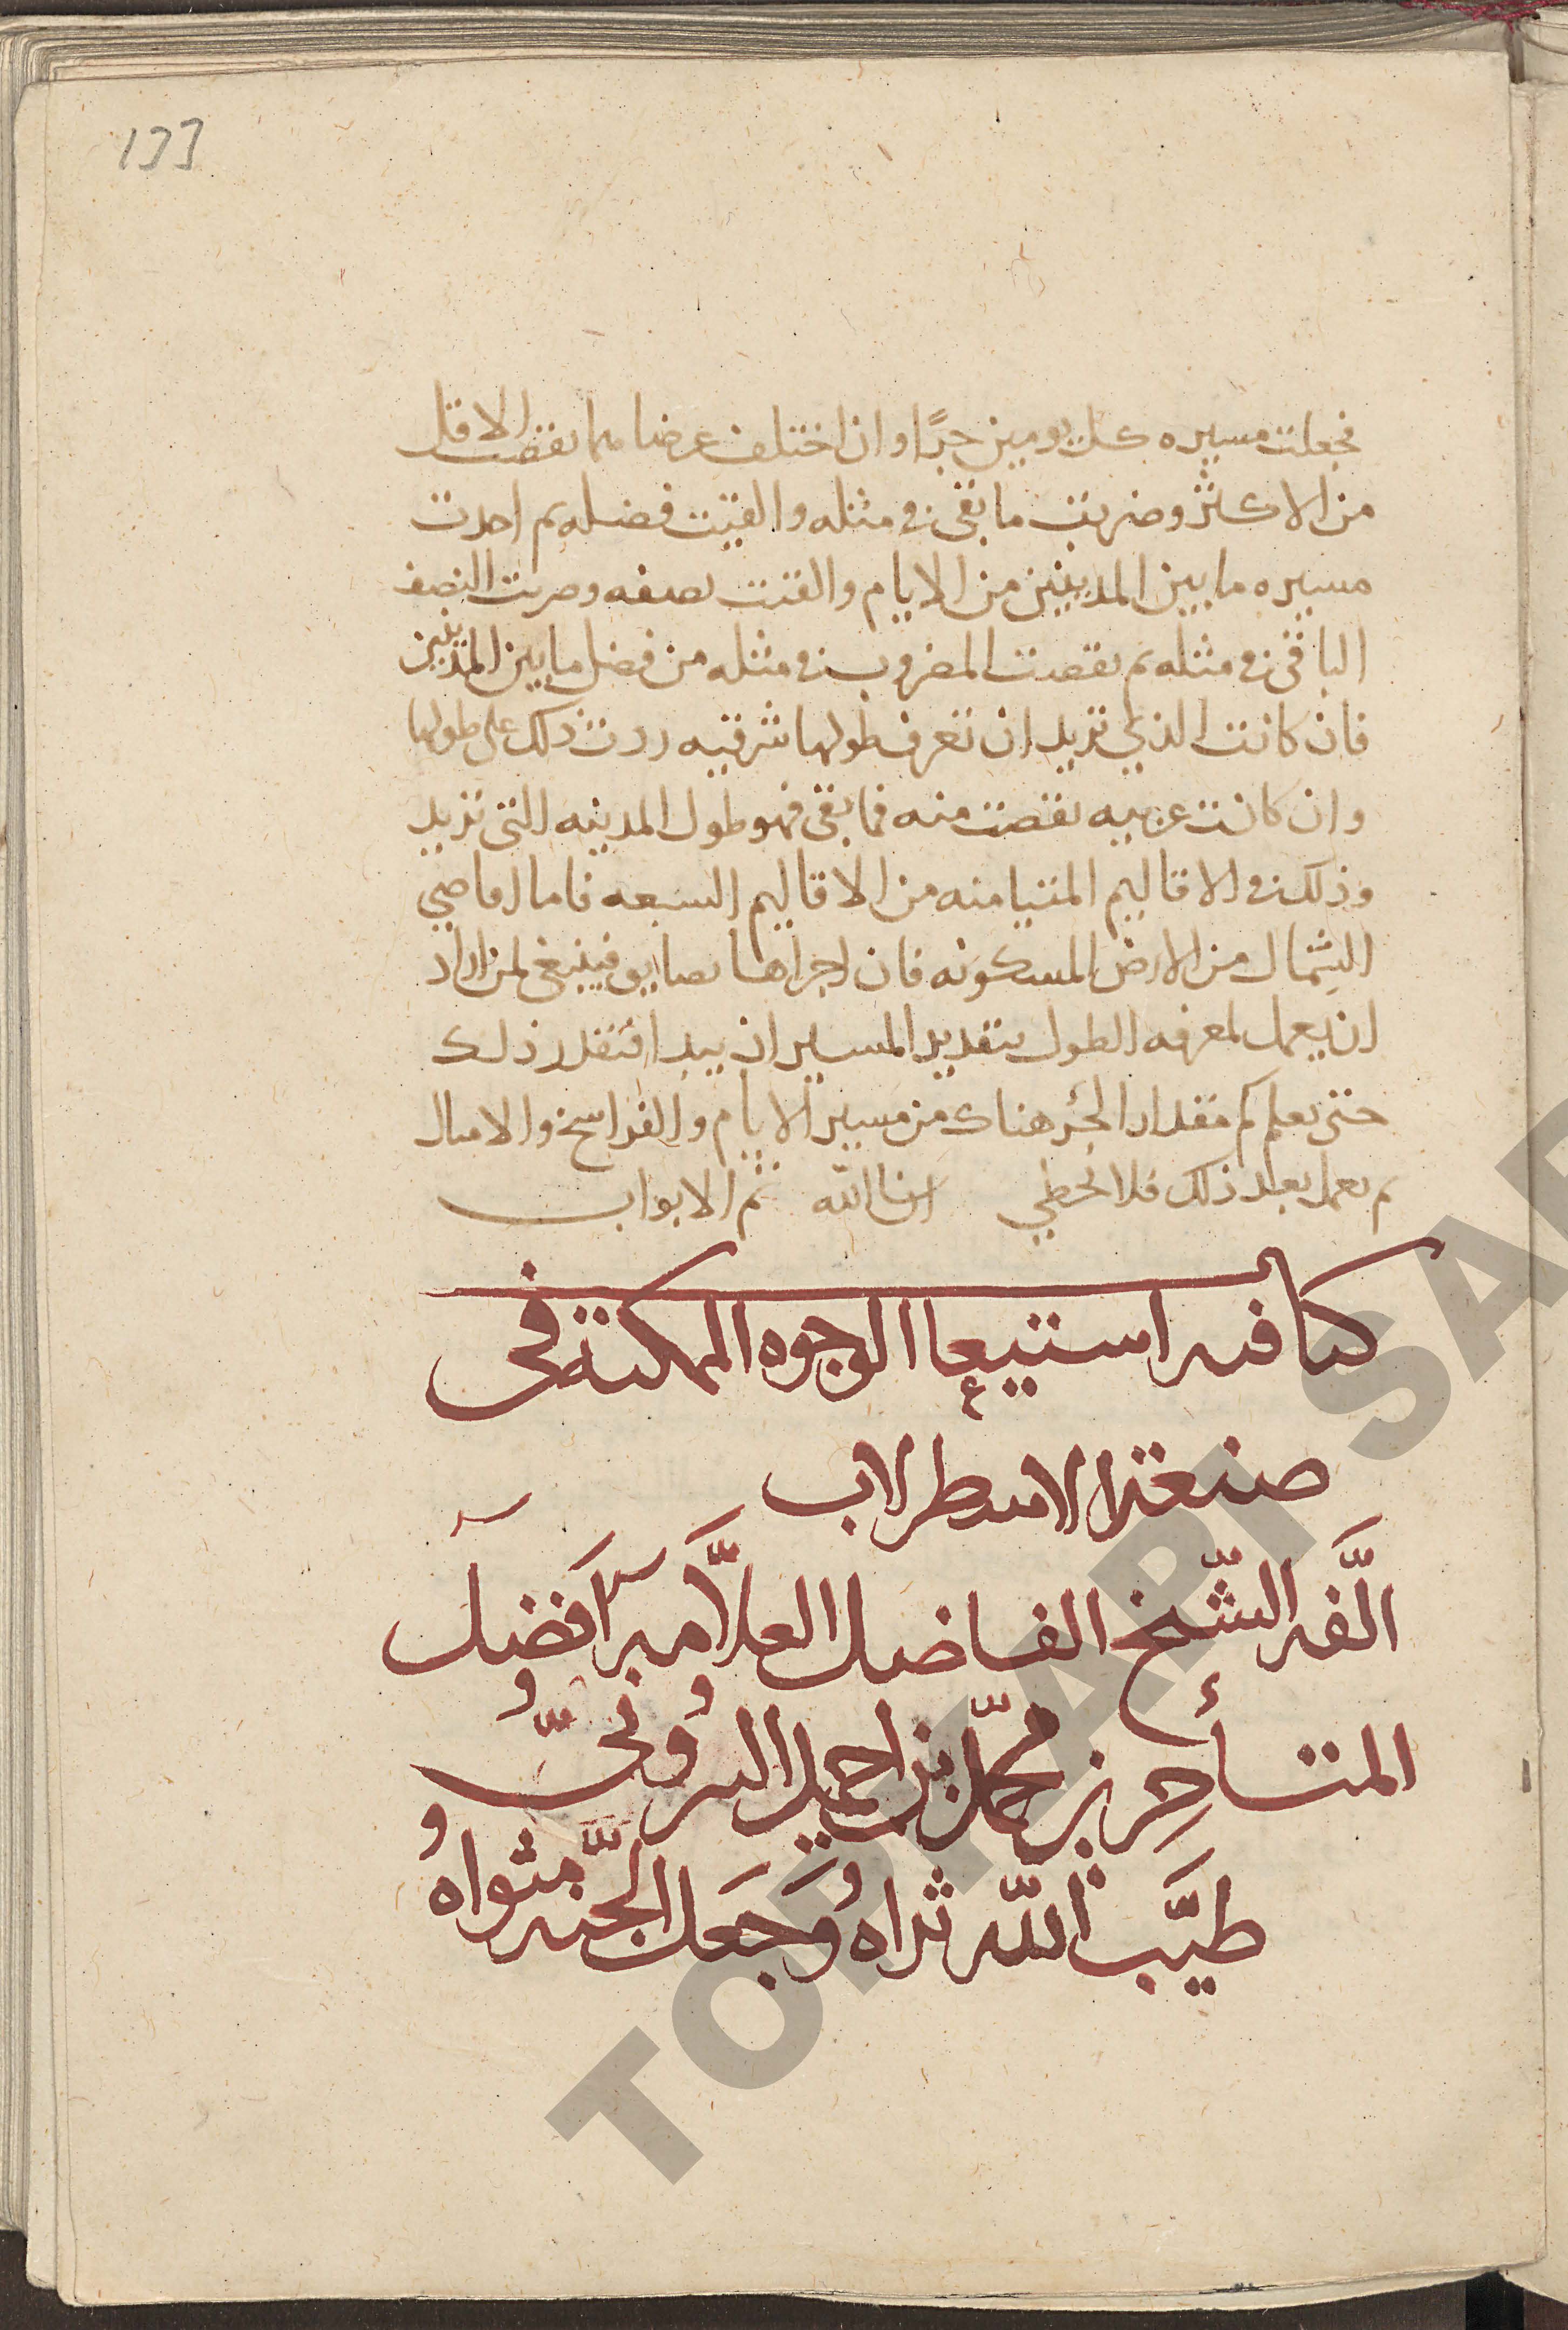 133
فجعلت مسيره كل يومين جزا وان اختلف عرضاهما نقصت الاقل
من الاكثر وضربت ما بقى فى مثله والقيت فضله ثم اخذت
مسيره ما بين المدينتين من الايام والقيت نصفه وضربت النصف
الباقى فى مثله ثم نقصت المضروب فى مثله من فضل ما بين المدينتين
فان كانت الذى تريد ان تعرف طولها شرقيه زدت ذلك على طولها
وان كانت غربيه نقصت منه فما بقى فهو طول المدينه التى تريد
وذلك فى الاقاليم المتيامنه من الاقاليم السبعه فاما اقاصى
الشمال من الارض المسكونه فان اجزاها تضايق فينبغى لمن اراد
ان يعمل لمعرفه الطول بتقدير المسير ان يبدا فيقدر ذلك
حتى يعلم كم مقدار الجزء هناك من مسير الايام والفراسخ والاميال
ثم يعمل بعد ذلك فلا يخطى ان شا الله تم الابواب
كتاب فيه استيعاب الوجوه الممكنة فى
صنعة الاسطرلاب
الَّفه الشّيخ الفاضل العلاَّمه اَفضل
المتأخرين محمّد بن احمد البيرونىّ
طيَّب الله ثراه وَجَعَل الجنّه مثواهُ
TOPKAPI SAR